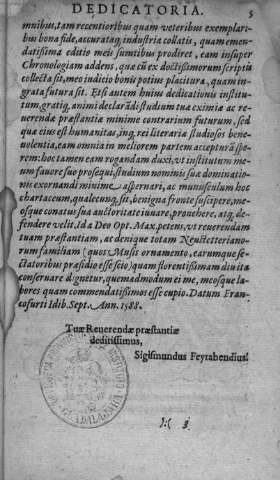 DEDICATORIA. 5
omnibus, tam recentioribus quam veteribus exemplari-
bus bona fide, accurataq; industria collatis, quam emen-
datissima editio meis sumtibus prodiret, eam insuper
Chronologiam addens, quæ cùm ex doctissimorum scriptis
collecta sit, meo iudicio bonis potius placitura, quam in-
grata futura sit. Etsi autem huius dedicationis institu-
tum, gratiq; animi declarādi studium tuæ eximiæ ac re-
uerendæ præstantiæ minime contrarium futurum, sed
quæ eius est humanitas, inq; rei literariæ studiosos bene-
uolentia, eam omnia in meliorem partem accepturā spe-
rem: hoc tamen eam rogandam duxi, vt institutum me-
um fauore suo prosequi, studium nominis sua dominatio-
nis exornandi minime aspernari, ac munusculum hoc
chartaceum, qualecunq; sit, benigna fronte suscipere, me-
osque conatus sua auctoritate iuuare, prouehere, atq; de-
fendere velit. Ida Deo Opt. Max. petens, vt reuerendam
tuam præstantiam, ac denique totam Neustetteriano-
rum familiam (quos Musis ornamento, earumque se-
ctatoribus præsidio esse scio) quam florentissimam diu ita
conseruare dignetur, quemadmodum ei me, meosque la-
bores quam commendatissimos esse cupio. Datum Fran-
cofurti Idib. Sept. Anno 1588.
Tuæ Reuerendæ præstantiæ
deditissimus,
Sigismundus Feyrabendius.
):( 3